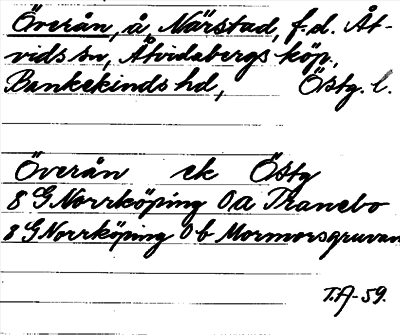 Överån, å, Närstad, f.d. Åt-
vids sn, Åtvidabergs köp.,
Bankekinds hd, Östg. l.
Överån ek Östg
8 G Norrköping 0a Tranebo
8 G Norrköping 0b Mormorsgruvan
T.A-59.